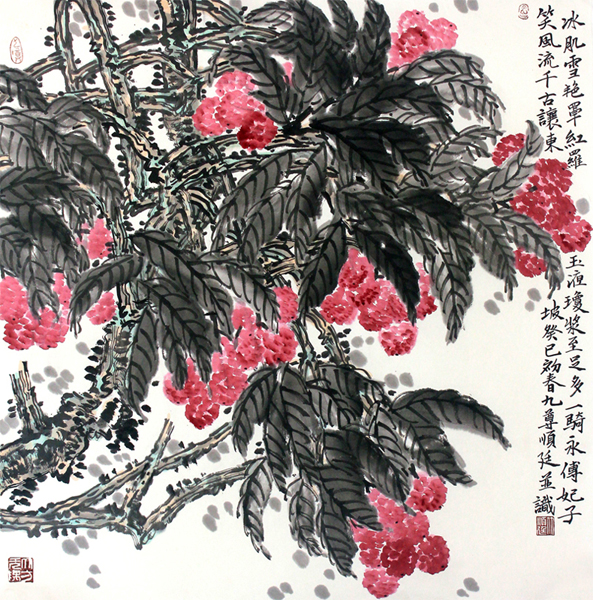 冰肌雪艳罩紅羅玉液瓊漿至足多一騎永傳妃子
笑風流千古讓東坡癸巳初春九尊順廷並識